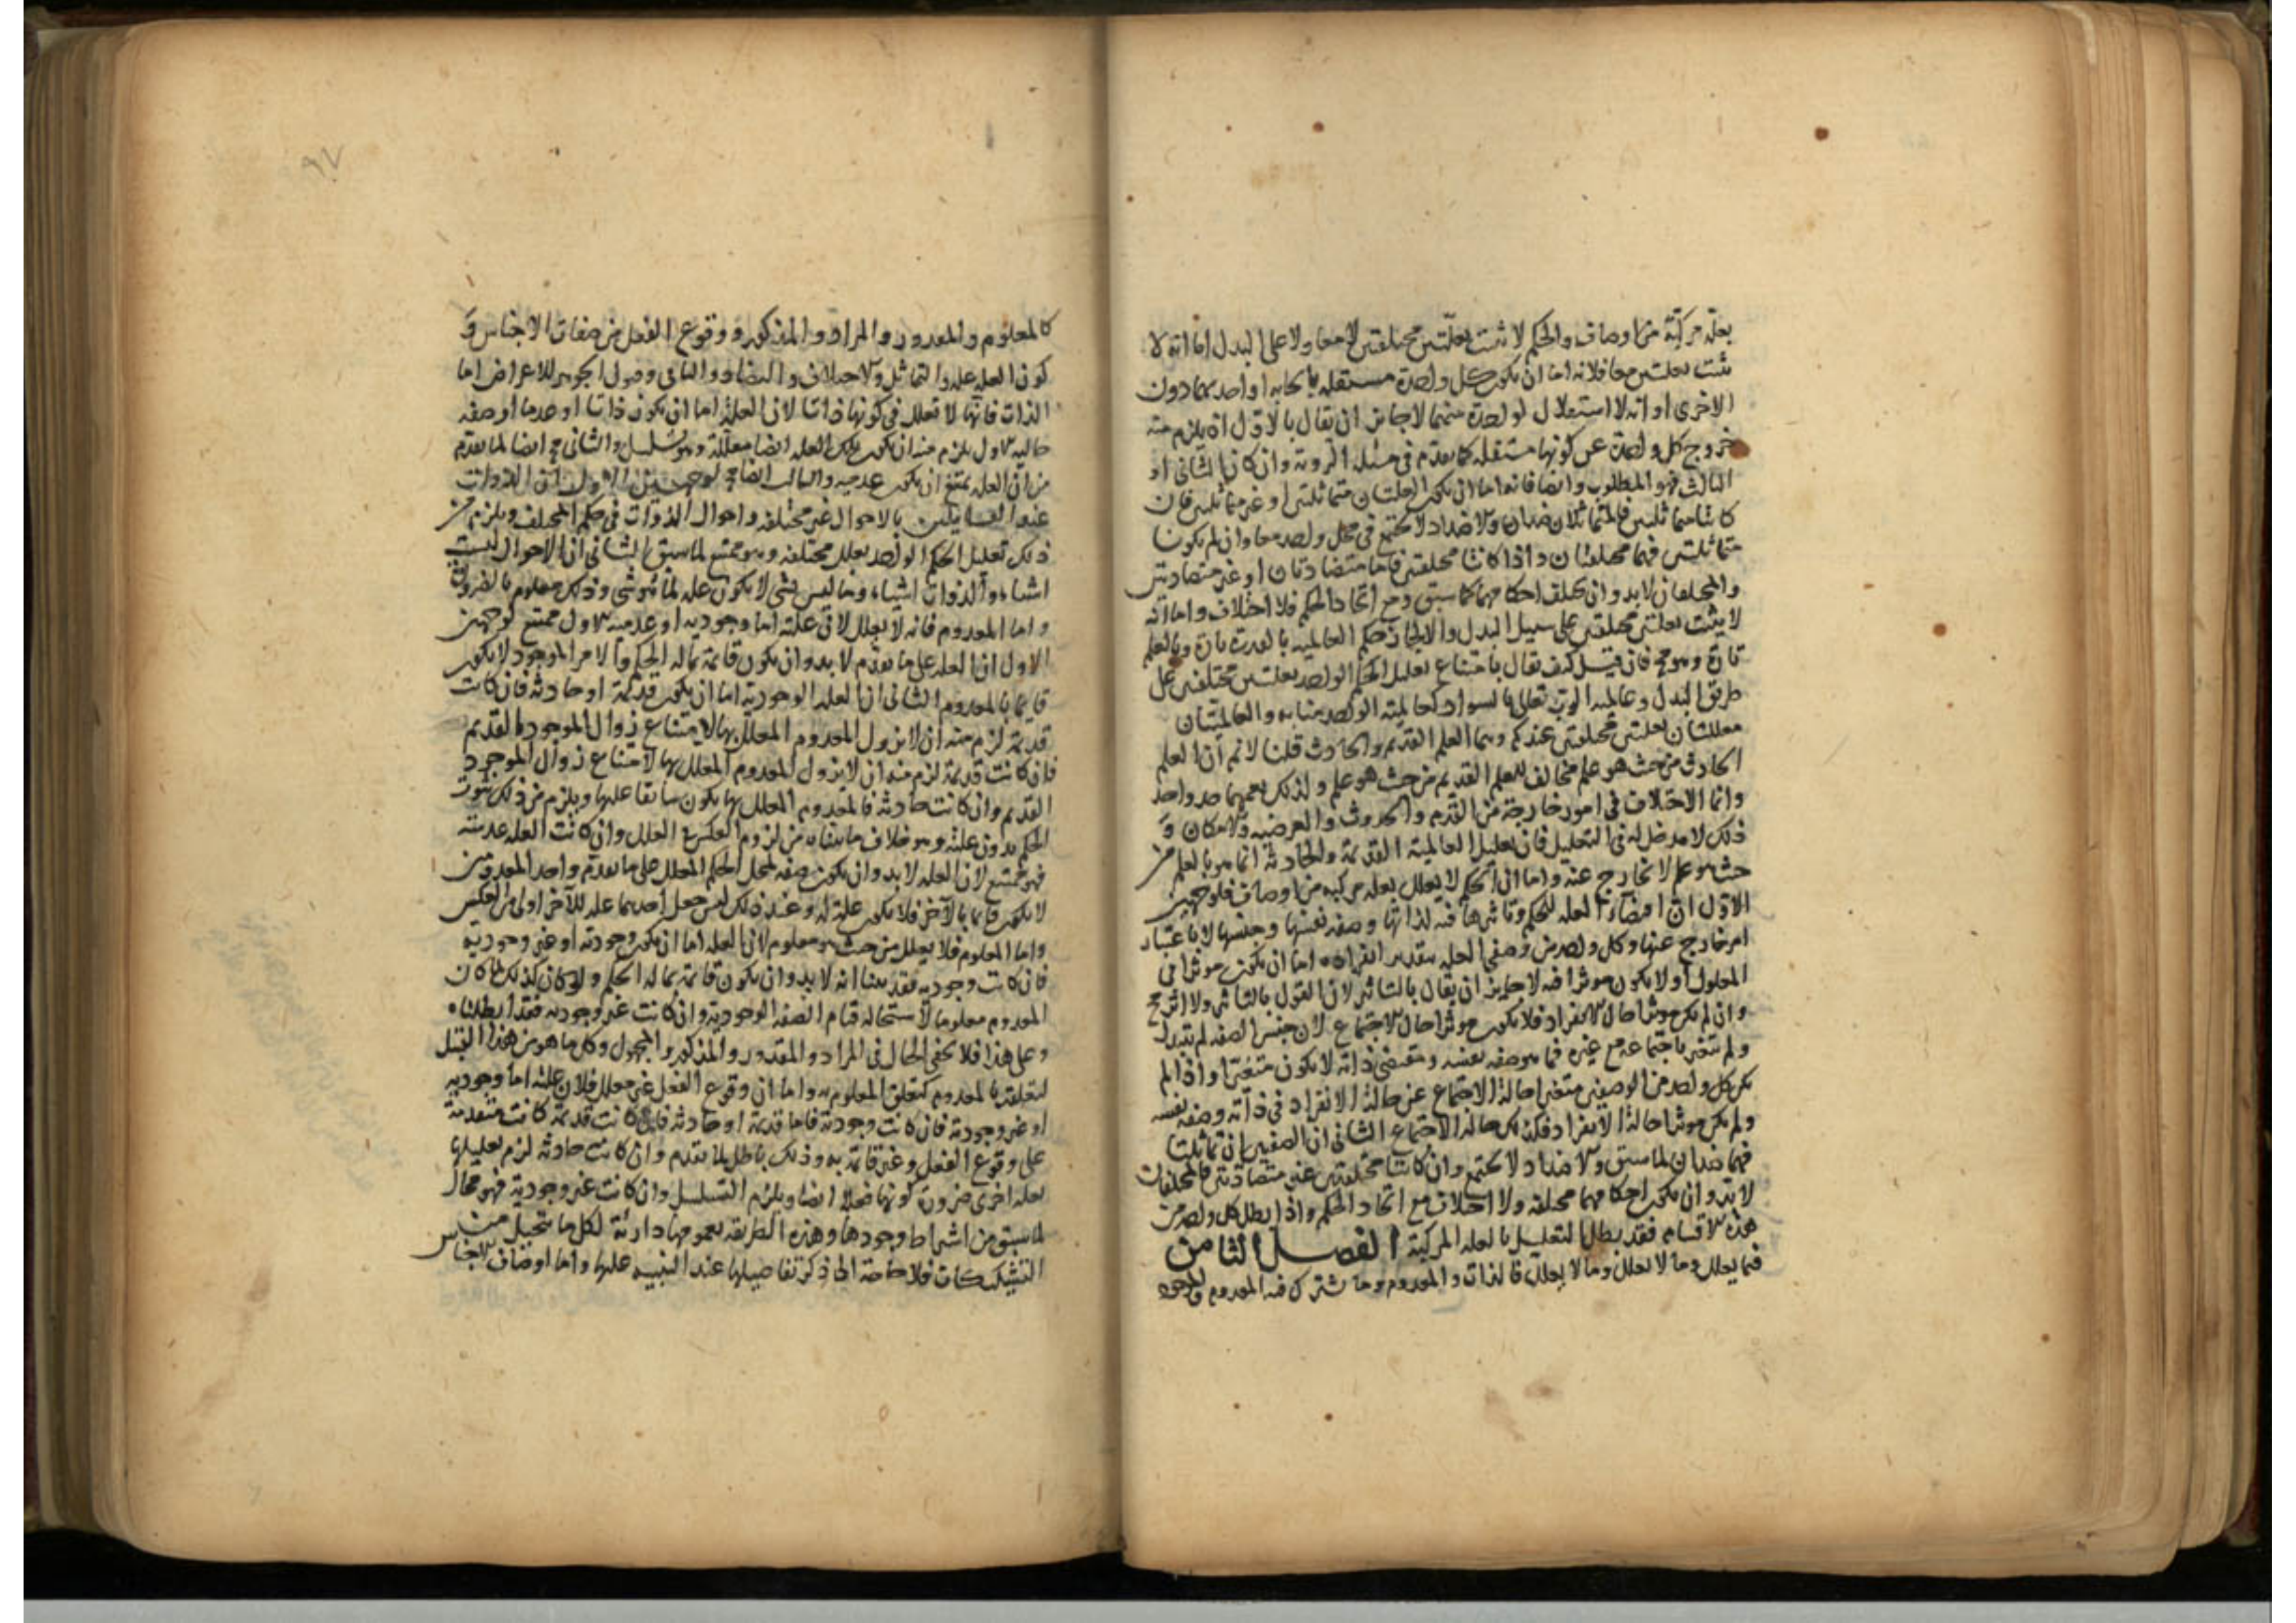 بعلة مركبة من اوصاف والحكم لا يثبت بعلتين مختلفتين لا معا ولا على البدل اما انه لا
يثبت بعلتين معا فلانه اما ان يكون كل واحدة مستقلة بايجابه او احديهما دون
الاخرى او انه لا استقلال لواحدة منهما لا جايز ان يقال بالاول اذ يلزم منه
خروج كل واحدة عن كونها مستقلة كما تقدم في مسئلة الروية وان كان الثانى او
الثالث فهو المطلوب وايضا فانه اما ان يكون العلتان متماثلتين او غير متماثلتين فان
كانتا متماثلتين فالمتماثلان ضدان والاضداد لا تجتمع في محل واحد معا وان لم يكونا
متماثلتين فهما مختلفتان واذا كانتا مختلفتين فاما متضادتان او غير متضادتين
والمختلفان لابد وان تختلف احكامهما كما سبق ومع اتحاد الحكم فلا اختلاف واما انه
لا يثبت بعلتين مختلفتين على سبيل البدل والا لجاز حكم العالمية بالقدرة تارة وبالعلم
تارة وهو مح فان قيل كيف يقال بامتناع تعليل الحكم الواحد بعلتين مختلفتين على
طريق البدل وعالمية الرب تعالى بالسواد كعالمية الواحد منا به والعالميتان
معللتان بعلتين مختلفتين عندكم وهما العلم القديم والحادث قلنا لا نم ان العلم
الحادث من حيث هو علم مخالف للعلم القديم من حيث هو علم ولذلك يعمهما حد واحد
وانما الاختلاف في امور خارجة من القدم والحدوث والعرضية والامكان و
ذلك لا مدخل له في التعليل فان تعليل العالمية القديمة والحادثة انما هو بالعلم من
حيث هو علم لا بخارج عنه واما ان الحكم لا يعلل بعلة مركبة من اوصاف فلوجهين
الاول ان اقتضاء العلة للحكم وتاثيرها فيه لذاتها وصفة نفسها وجنسها لا باعتبار
امر خارج عنها وكل واحد من وصفي العلة بتقدير انفراده اما ان يكون موثرا في
المعلول او لا يكون موثرا فيه لا جايز ان يقال بالتاثير لان القول بالتاثير ولا اثر مح
وان لم يكن موثرا حال الانفراد فلا يكون موثرا حال الاجتماع لان جنس الصفة لم يتبدل
ولم يتغير باجتماعه مع غيره فما هو صفة نفسه ومقتضى ذاته لا يكون متغيرا واذا لم
يكن كل واحد من الوصفين متغيرا حالة الاجتماع عن حالة الانفراد في ذاته وصفة نفسه
ولم يكن موثرا حالة الانفراد فكذلك حالة الاجتماع الثانى ان الصفتين ان تماثلتا
فهما ضدان لما سبق والاضداد لا تجتمع وان كانتا مختلفتين غير متضادتين فالمختلفات
لابد وان يكون احكامهما مختلفة ولا اختلاف مع اتحاد الحكم واذا بطل كل واحد من
هذه الاقسام فقد بطل التعليل بالعلة المركبة الفصل الثامن
فيما يعلل وما لا يعلل وما لا يعلل فالذات والمعدوم وما يشترك فيه المعدوم والموجود
كالمعلوم والمقدور والمراد والمذكور ووقوع الفعل من صفات الاجناس و
كون العلة علة والتماثل والاختلاف والتضاد والتنافي وقبول الجوهر للاعراض اما
الذات فانها لا تعلل في كونها ذاتا لان العلة اما ان يكون ذاتا او عدما او صفة
حالية الاول يلزم منه ان يكون تلك العلة ايضا معللة وهو تسلسل والثانى مح ايضا لما تقدم
من ان العلة يمتنع ان يكون عدمية والثالث ايضا مح لوجهين الاول ان الذوات
عند القايلين بالاحوال غير مختلفة واحوال الذوات في حكم المختلف ويلزم من
ذلك تعليل الحكم الواحد بعلل مختلفة وهو ممتنع لما سبق الثانى ان الاحوال ليست
اشياء والذوات اشياء وما ليس بشى لا يكون علة لما هو شى وذلك معلوم بالضرورة
واما المعدوم فانه لا يعلل لان علته اما وجودية او عدمية الاول ممتنع لوجهين
الاول ان العلة على ما تقدم لابد وان يكون قائمة بما له الحكم والامر الموجود لا يكون
قايما بالمعدوم الثانى ان العلة الوجودية اما ان يكون قديمة او حادثة فان كانت
قديمة لزم منه ان لا يزول المعدوم المعلل بها لامتناع زوال الموجود القديم
فان كانت قديمة لزم منه ان لا يزول المعدوم المعلل بها لامتناع زوال الموجود
القديم وان كانت حادثة فالمعدوم المعلل بها يكون سابقا عليها ويلزم من ذلك ثبوت
الحكم بدون علته وهو خلاف ما بيناه من لزوم العكس في العلل وان كانت العلة عدمية
فهو ممتنع لان العلة لابد وان يكون صفة لمحل الحكم المعلل على ما تقدم واحد المعدومين
لا يكون قايما بالآخر فلا يكون علة له وعند ذلك ليس جعل احدهما علة للآخر اولى من العكس
واما المعلوم فلا يعلل من حيث هو معلوم لان العلة اما ان يكون وجودية او غير وجودية
فان كانت وجودية فقد بينا انه لابد وان يكون قائمة بما له الحكم ولو كان كذلك لما كان
المعدوم معلوما لاستحالة قيام الصفة الوجودية به وان كانت غير وجودية فقد ابطلناه
وعلى هذا فلا يخفى الحال في المراد والمقدور والمذكور والمجهول وكل ما هو من هذا القبيل
لتعلقه بالمعدوم كتعلق المعلوم به واما ان وقوع الفعل غير معلل فلان علته اما وجودية
او غير وجودية فان كانت وجودية فاما قديمة او حادثة فان كانت قديمة كانت متقدمة
على وقوع الفعل وغير قائمة به وذلك باطل بما تقدم وان كانت حادثة لزم تعليلها
بعلة اخرى ضرورة كونها فعلا ايضا ويلزم التسلسل وان كانت غير وجودية فهو محال
لما سبق من اشتراط وجودها وهذه الطريقة بعمومها دارئة لكل ما يتخيل من
التشكيكات فلا حاجة الى ذكر تفاصيلها عند التنبيه عليها واما اوصاف الاجناس